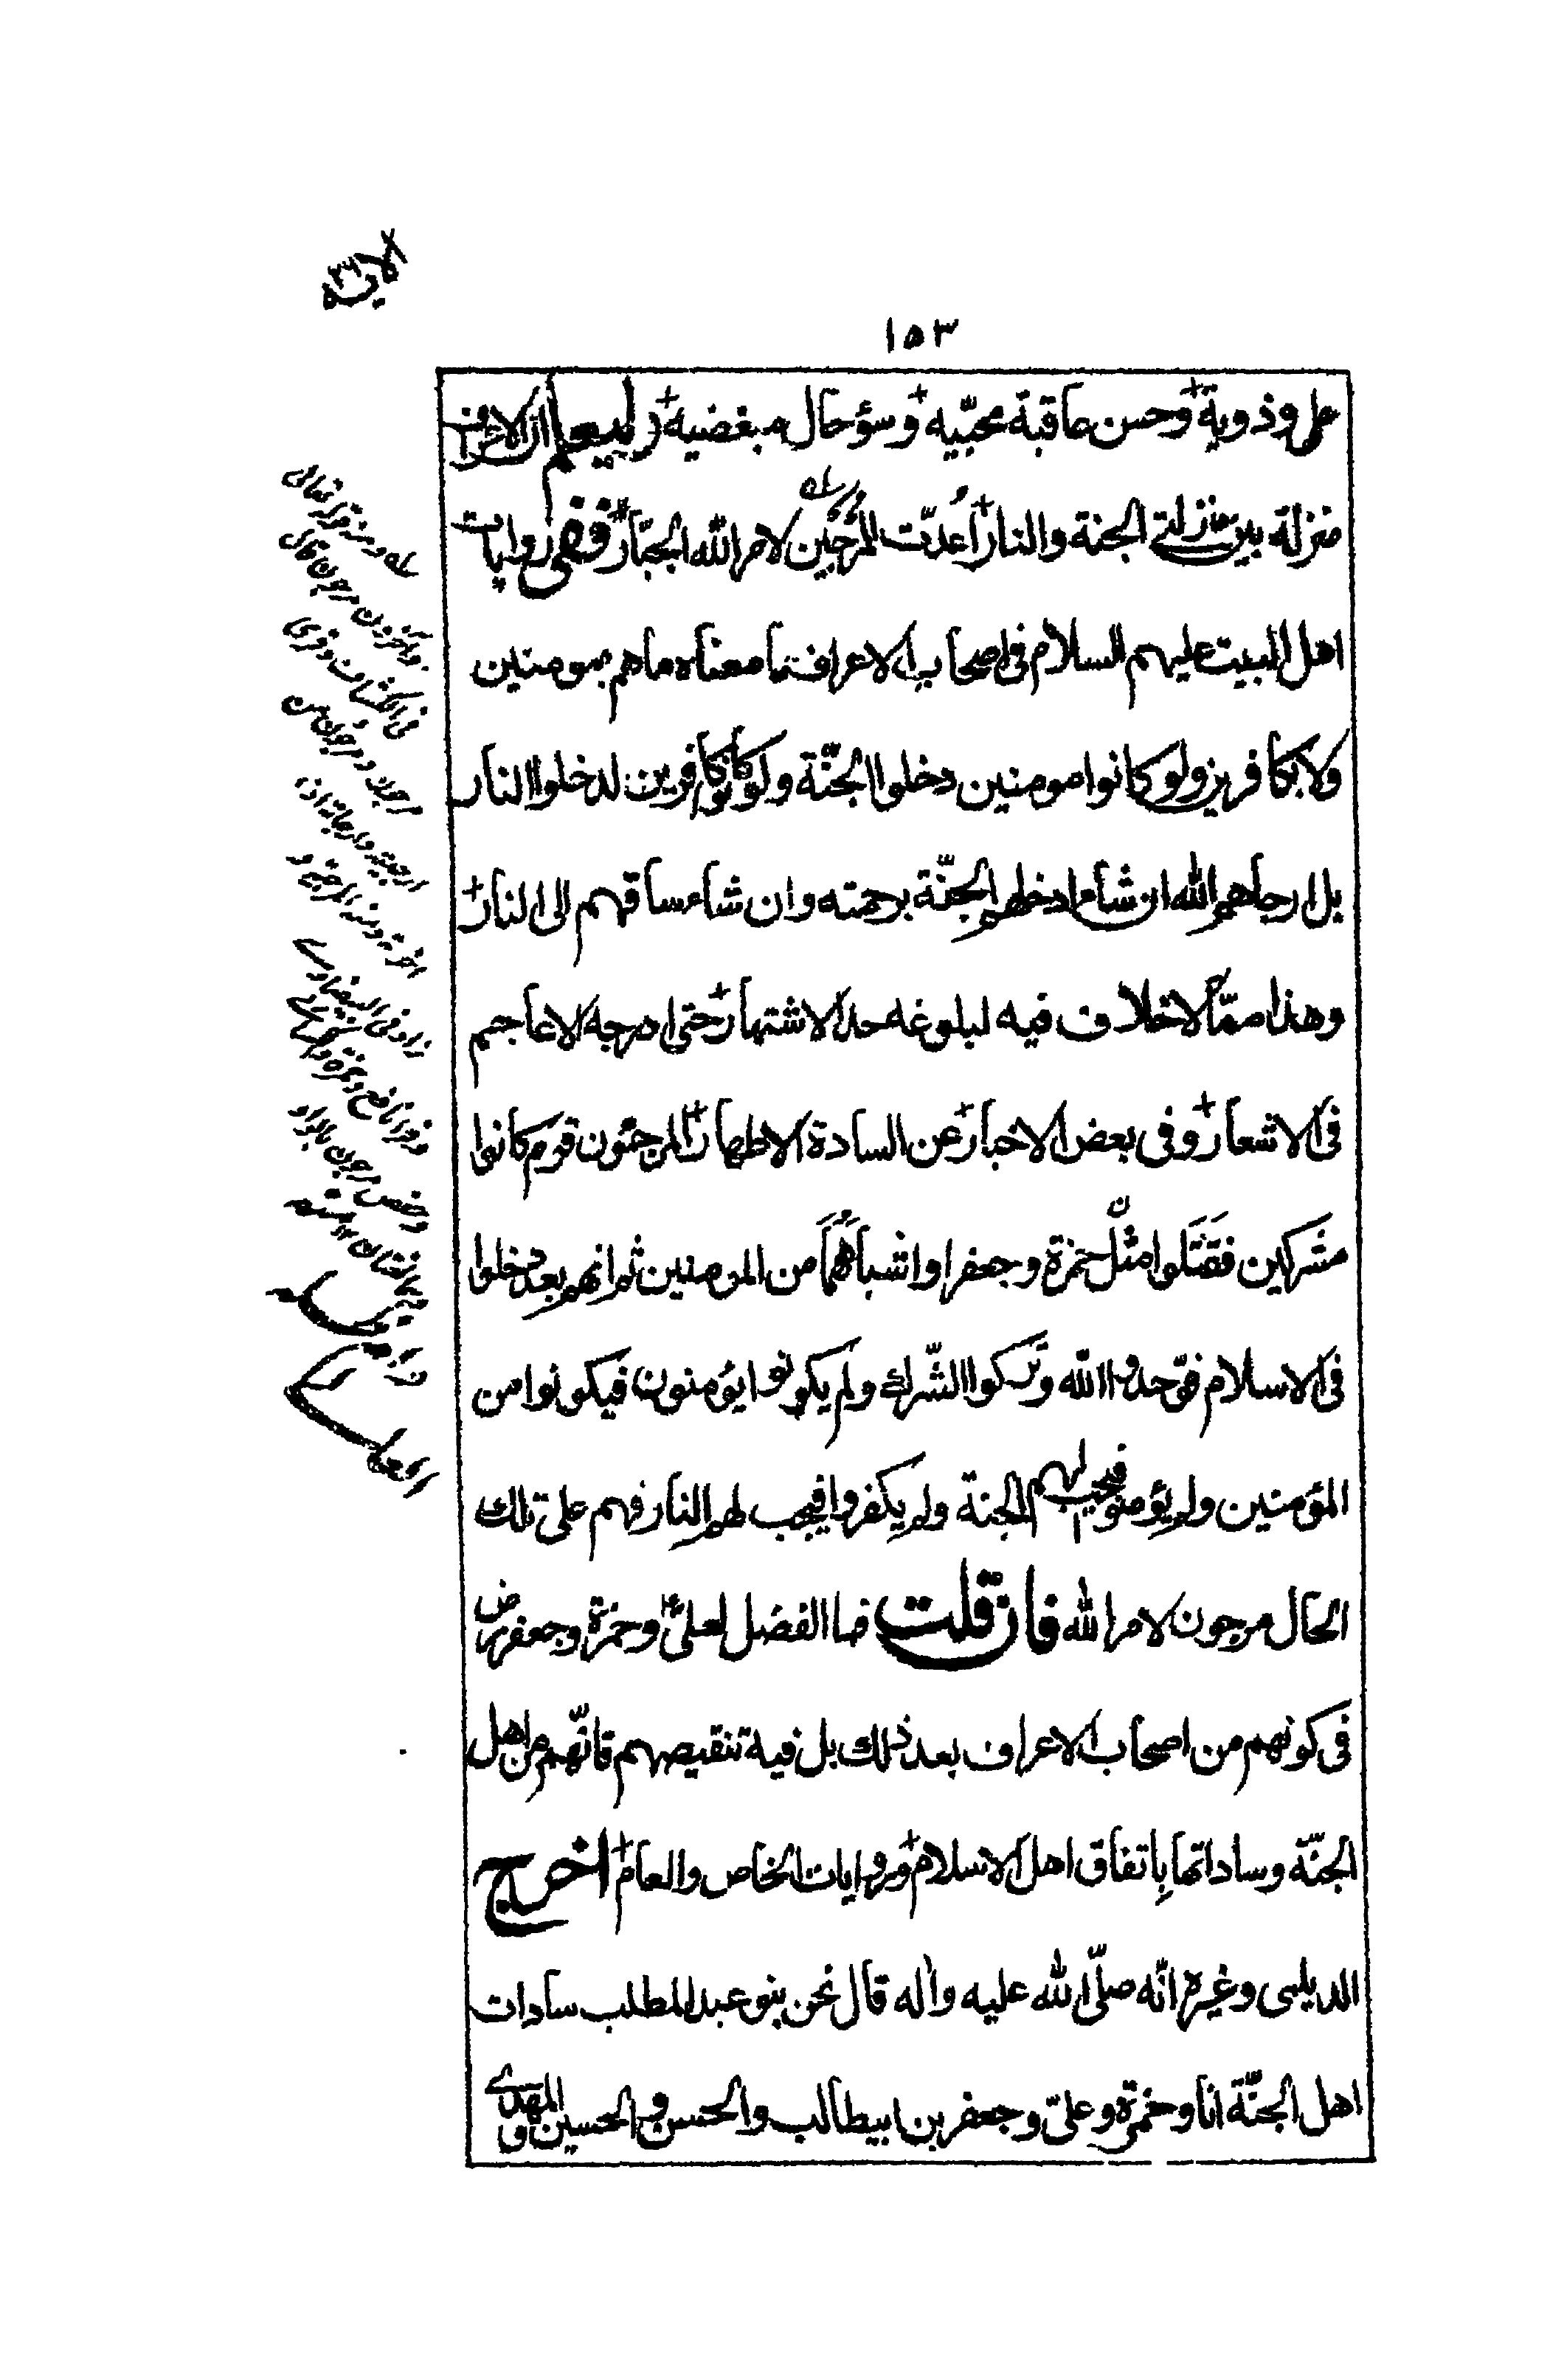 ١٥٣
على وذويه وحسن عاقبة محبّيه وسؤحال مبغضيه وليعلم ان الاعراف
منزلة بين منزلتى الجنة والنار اُعدّت للمُرجَين لامر الله الجبّار ففى روايات
اهل البيت عليهم السلام فى اصحاب الاعراف ما معناه ما هم بمومنين
ولا بكافرين ولو كانوا مومنين دخلوا الجنّة ولو كانوا كافرين لدخلوا النار
بل ارجاهم الله ان شاء ادخلهم الجنّة برحمته وان شاء ساقهم الى النار
وهذا ممّا لا خلاف فيه لبلوغه حد الاشتهار حتى ادرجه الاعاجم
فى الاشعار وفى بعض الاخبار عن السادة الاطهار المرجئون قوم كانوا
مشركين فقَتَلوا مثل حمزة وجعفر او اشباههما من المومنين ثم انهم بعد دخلوا
فى الاسلام فوّحدوا الله وتركوا الشّرك ولم يكونوا يؤمنون فيكونوا من
المؤمنين ولم يؤمنوا فيجب لهم الجنة ولم يكفروا فيجب لهم النار فهم على تلك
الحال مرجون لامر الله فان قلت فما الفضل لعلىّ وحمزة وجعفر رض
فى كونهم من اصحاب الاعراف بعد ذلك بل فيه تنقيصهم فانّهم من اهل
الجنّة وساداتها باتفاق اهل الاسلام وروايات الخاص والعام اخرج
الديلمى وغيره انّه صلّى الله عليه واله قال نحن بنو عبد المطلب سادات
اهل الجنّة انا وحمزة وعلىّ وجعفر بن ابيطالب والحسن والحسين والمهدى
ومنه قوله تعالى
وآخرون مرجون قال
فى الكشاف وقرى
مرجون ومرجؤن من
ارجيته وارجاته اذا
اخرته ومنه المرجئة
زاد فى البيضاوى
وقرأ نافع وحمزة والكسائى
وحفص مرجون بالواو